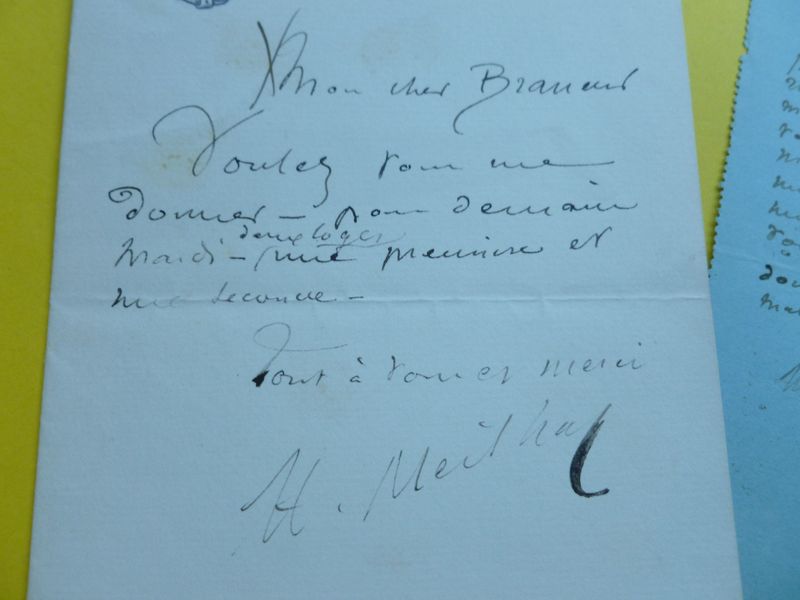 Mon cher
Voulez vous me
donner – pour demain
deux loges
mardi – une première et
une seconde –
Tout à vous et merci
H. Meilhac